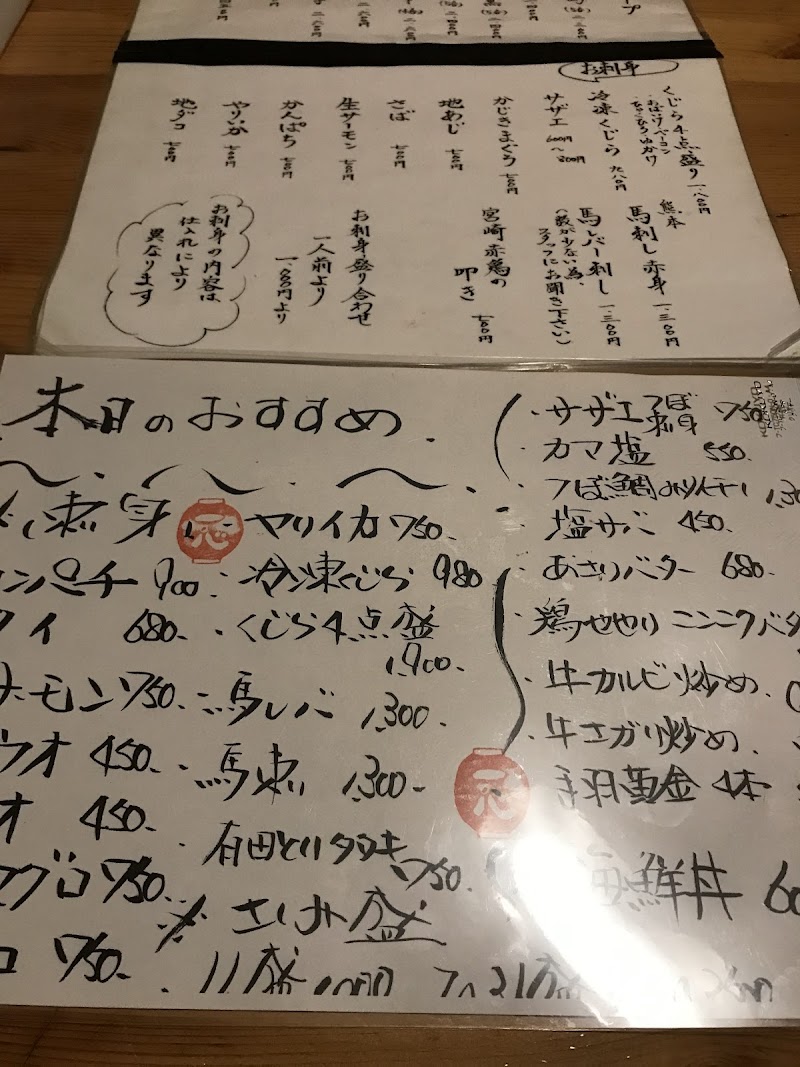 お刺身
くじら4点盛り 一、八〇〇円
おばけ・ベーコン
冷凍くじら 九八〇円
サザエ 600円〜800円
かじきまぐろ 七〇〇円
地あじ 七〇〇円
さば 七〇〇円
生サーモン 七〇〇円
かんぱち 七〇〇円
やりいか 七〇〇円
地ダコ 七〇〇円
熊本
馬刺し赤身 一、三〇〇円
馬レバー刺し 一、三〇〇円
(数が少ない為、
スタッフにお聞き下さい)
宮崎赤鶏の
叩き 七〇〇円
お刺身盛り合わせ
一人前より
一、〇〇〇円より
お刺身の内容は
仕入れにより
異なります
本日のおすすめ
刺身
ンパチ 900
イ 680
ーモン 750
ウオ 450
オ 450
マグロ 750
コ 750
ヤリイカ 750
冷凍くじら 980
くじら4点盛
1,900
馬レバ 1,300
馬刺 1,300
有田とりタタキ
750
さしみ盛
サザエつぼ
刺身 750
カマ塩 550
つぼ鯛みりん干し
塩サバ 450
あさりバター 680
鶏せせり ニンニクバタ
牛カルビ炒め
牛さがり炒め
手羽黄金 4本
海鮮丼